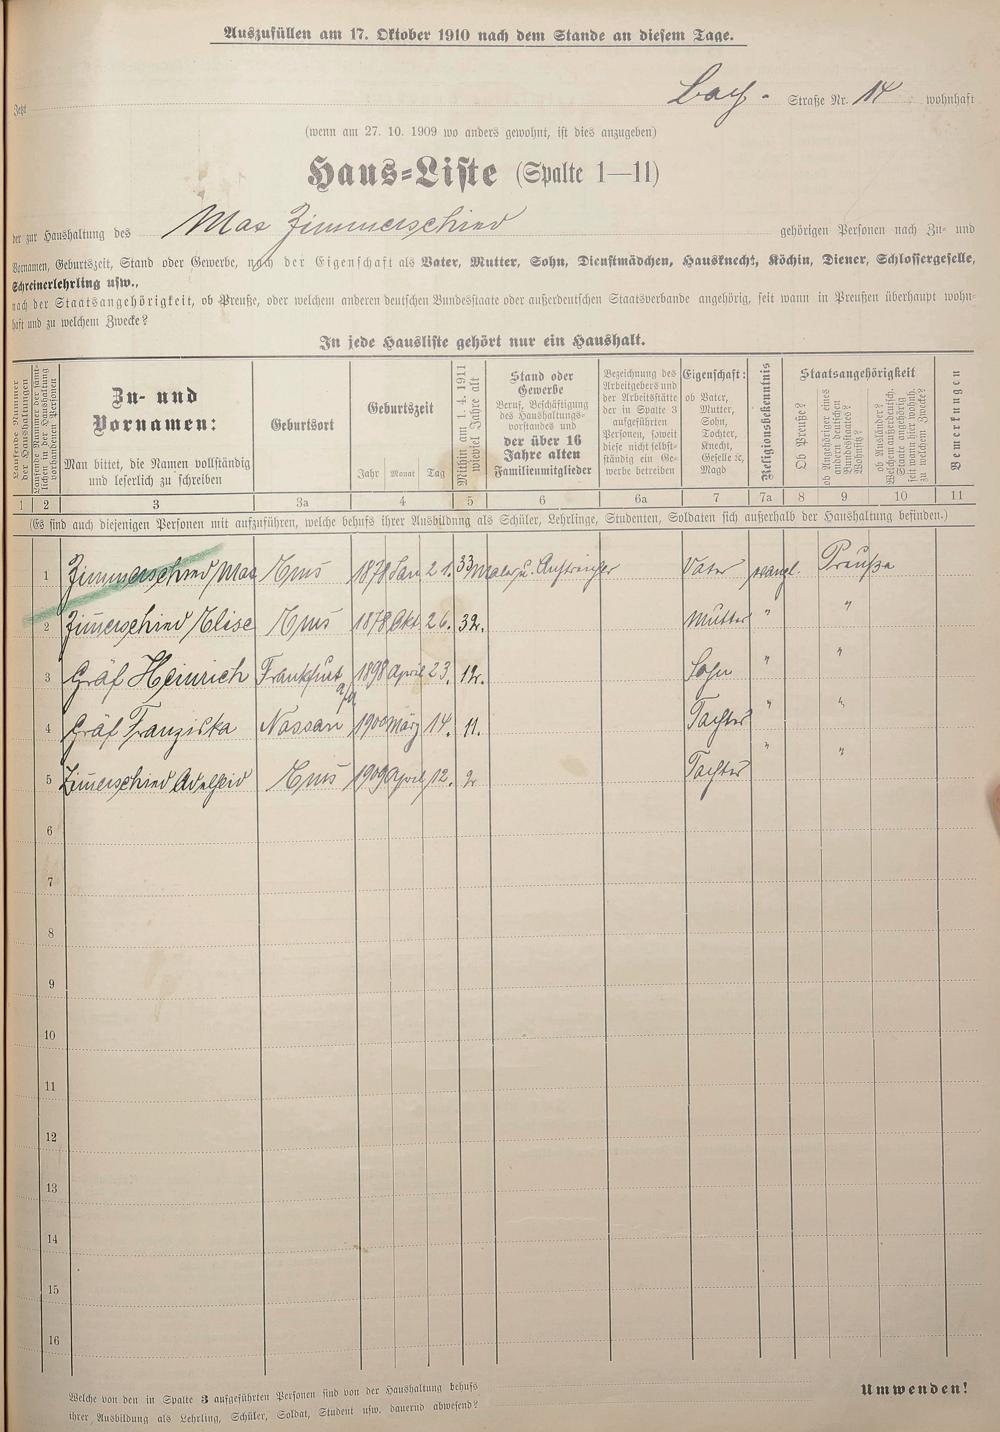 Auszufüllen am 17. Oktober 1910 nach dem Stande an diesem Tage.
Jetzt Straße Nr. 14 wohnhaft
(wenn am 27. 10. 1909 wo anders gewohnt, ist dies anzugeben)
Haus-Liste (Spalte 1—11)
der zur Haushaltung des Max Zimmerschied gehörigen Personen nach Zu- und
Vornamen, Geburtszeit, Stand oder Gewerbe, nach der Eigenschaft als Vater, Mutter, Sohn, Dienstmädchen, Hausknecht, Köchin, Diener, Schlossergeselle,
Schreinerlehrling usw.,
nach der Staatsangehörigkeit, ob Preuße, oder welchem anderen deutschen Bundesstaate oder außerdeutschen Staatsverbande angehörig, seit wann in Preußen überhaupt wohn-
haft und zu welchem Zwecke?
In jede Hausliste gehört nur ein Haushalt.
Laufende Nummer der Haushaltungen
Laufende Nummer der sämt-
lichen in der Haushaltung
vorhandenen Personen
Zu- und
Vornamen:
Man bittet, die Namen vollständig
und leserlich zu schreiben
Geburtsort
Geburtszeit
Jahr Monat Tag
Mithin am 1. 4. 1911
wieviel Jahre alt
Stand oder
Gewerbe
Beruf, Beschäftigung
des Haushaltungs-
vorstandes und
der über 16
Jahre alten
Familienmitglieder
Bezeichnung des
Arbeitgebers und
der Arbeitsstätte
der in Spalte 3
aufgeführten
Personen, soweit
diese nicht selbst-
ständig ein Ge-
werbe betreiben
Eigenschaft:
ob Vater,
Mutter,
Sohn,
Tochter,
Knecht,
Geselle ꝛc.
Magd
Religionsbekenntnis
Staatsangehörigkeit
Ob Preuße?
ob Angehöriger eines
andern deutschen
Bundesstaates?
Wohnsitz?
ob Ausländer?
Welchem außerdeutsch.
Staate angehörig
seit wann hier wohnh.
zu welchem Zwecke?
Bemerkungen
1 2 3 3a 4 5 6 6a 7 7a 8 9 10 11
(Es sind auch diejenigen Personen mit aufzuführen, welche behufs ihrer Ausbildung als Schüler, Lehrlinge, Studenten, Soldaten sich außerhalb der Haushaltung befinden.)
1 Zimmerschied Max Ems 1878 Jan 21. 33 Maler u. Anstreicher Vater evangl. Preuße
2 Zim̄erschied Elise Ems 1878 Okt. 26. 32. Mutter " "
3 Gräf Heinrich Frankfurt 1898 April 23. 12. Sohn " "
4 Gräf Franziska Nassau 1900 März 14. 11. Tochter " "
5 Zim̄erschied Adelheid Ems 1909 April 12. 2 Tochter " "
6
7
8
9
10
11
12
13
14
15
16
Welche von den in Spalte 3 aufgeführten Personen sind von der Haushaltung behufs
ihrer Ausbildung als Lehrling, Schüler, Soldat, Student usw. dauernd abwesend?
Umwenden!